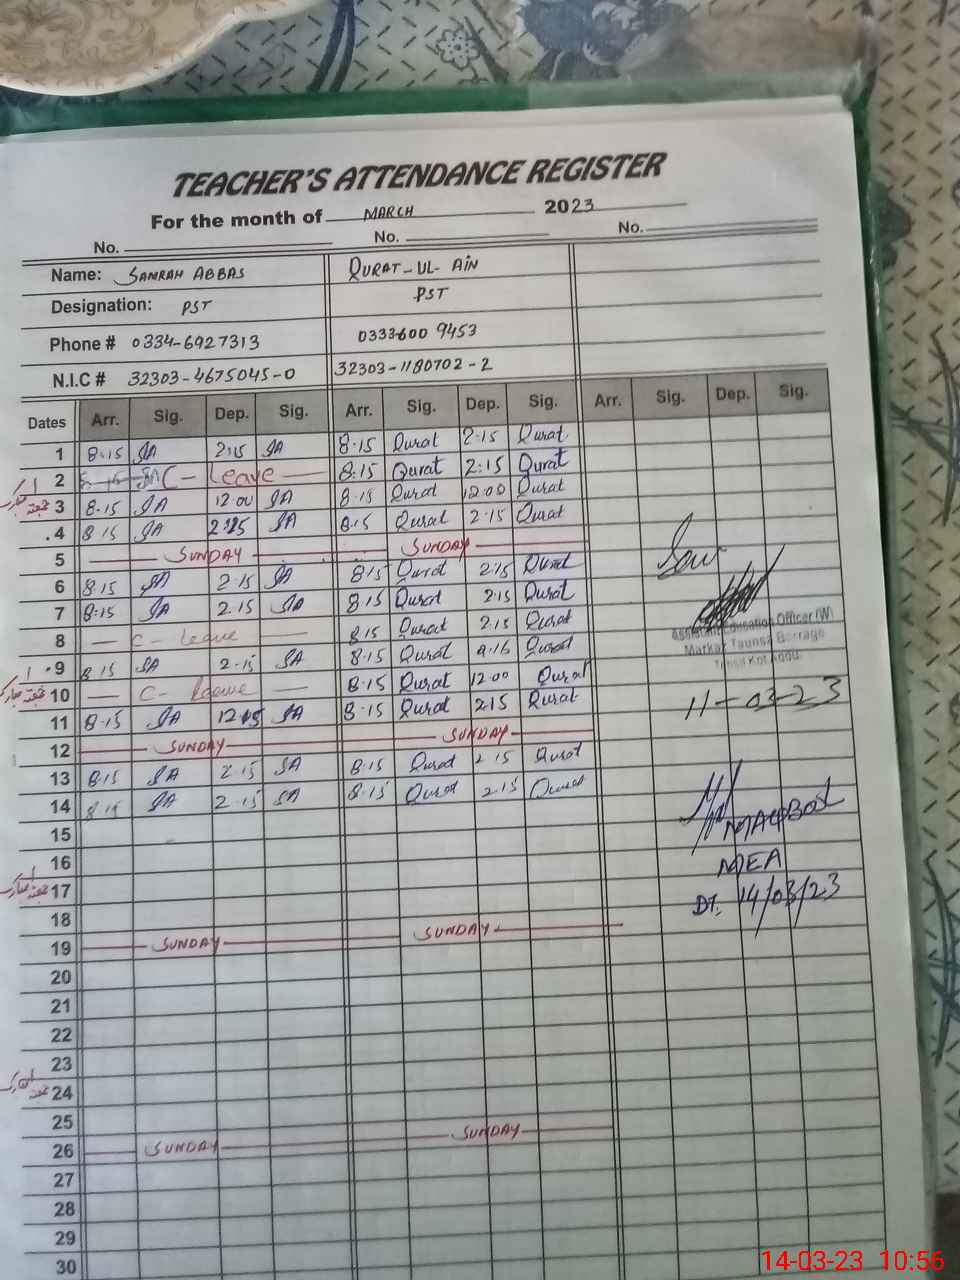 TEACHER'S ATTENDANCE REGISTER
For the month of MARCH 2023
No. No. No.
Name: SAMRAH ABBAS QURAT-UL-AIN
Designation: PST PST
Phone # 0334-6927313 0333-600 9453
N.I.C # 32303-4675045-0 32303-1180702-2
Dates Arr. Sig. Dep. Sig. Arr. Sig. Dep. Sig. Arr. Sig. Dep. Sig.
1 8.15 SA 2.15 SA 8.15 Qurat 2.15 Qurat
2 C- Leave 8:15 Qurat 2:15 Qurat
3 8.15 SA 12.00 SA 8.15 Qurat 12.00 Qurat
4 8.15 SA SA 8.15 Qurat 2.15 Qurat
5 SUNDAY SUNDAY
6 8.15 SA 2.15 SA 8.15 Qurat 2.15 Qurat
7 8.15 SA 2.15 SA 8.15 Qurat 2.15 Qurat
8 C-Leave 8.15 Qurat 2.15 Qurat
9 8.15 SA 2.15 SA 8.15 Qurat Qurat
10 C-Leave 8.15 Qurat 12.00 Qurat
11 8.15 SA SA 8.15 Qurat 2.15 Qurat
12 SUNDAY SUNDAY
13 8.15 SA 2.15 SA 8.15 Qurat 2.15 Qurat
14 8.15 SA 2.15 SA 8.15 Qurat 2.15 Qurat
15
16
17
18
19 SUNDAY SUNDAY
20
21
22
23
24
25
26 SUNDAY SUNDAY
27
28
29
30
Assistant Education Officer (W)
Markaz Taunsa Barrage
Tehsil Kot Addu
11-03-23
MAQBOOL
MEA
DT. 14/03/23
جمعۃ المبارک
جمعۃ المبارک
جمعۃ المبارک
جمعۃ المبارک
14-03-23 10:56